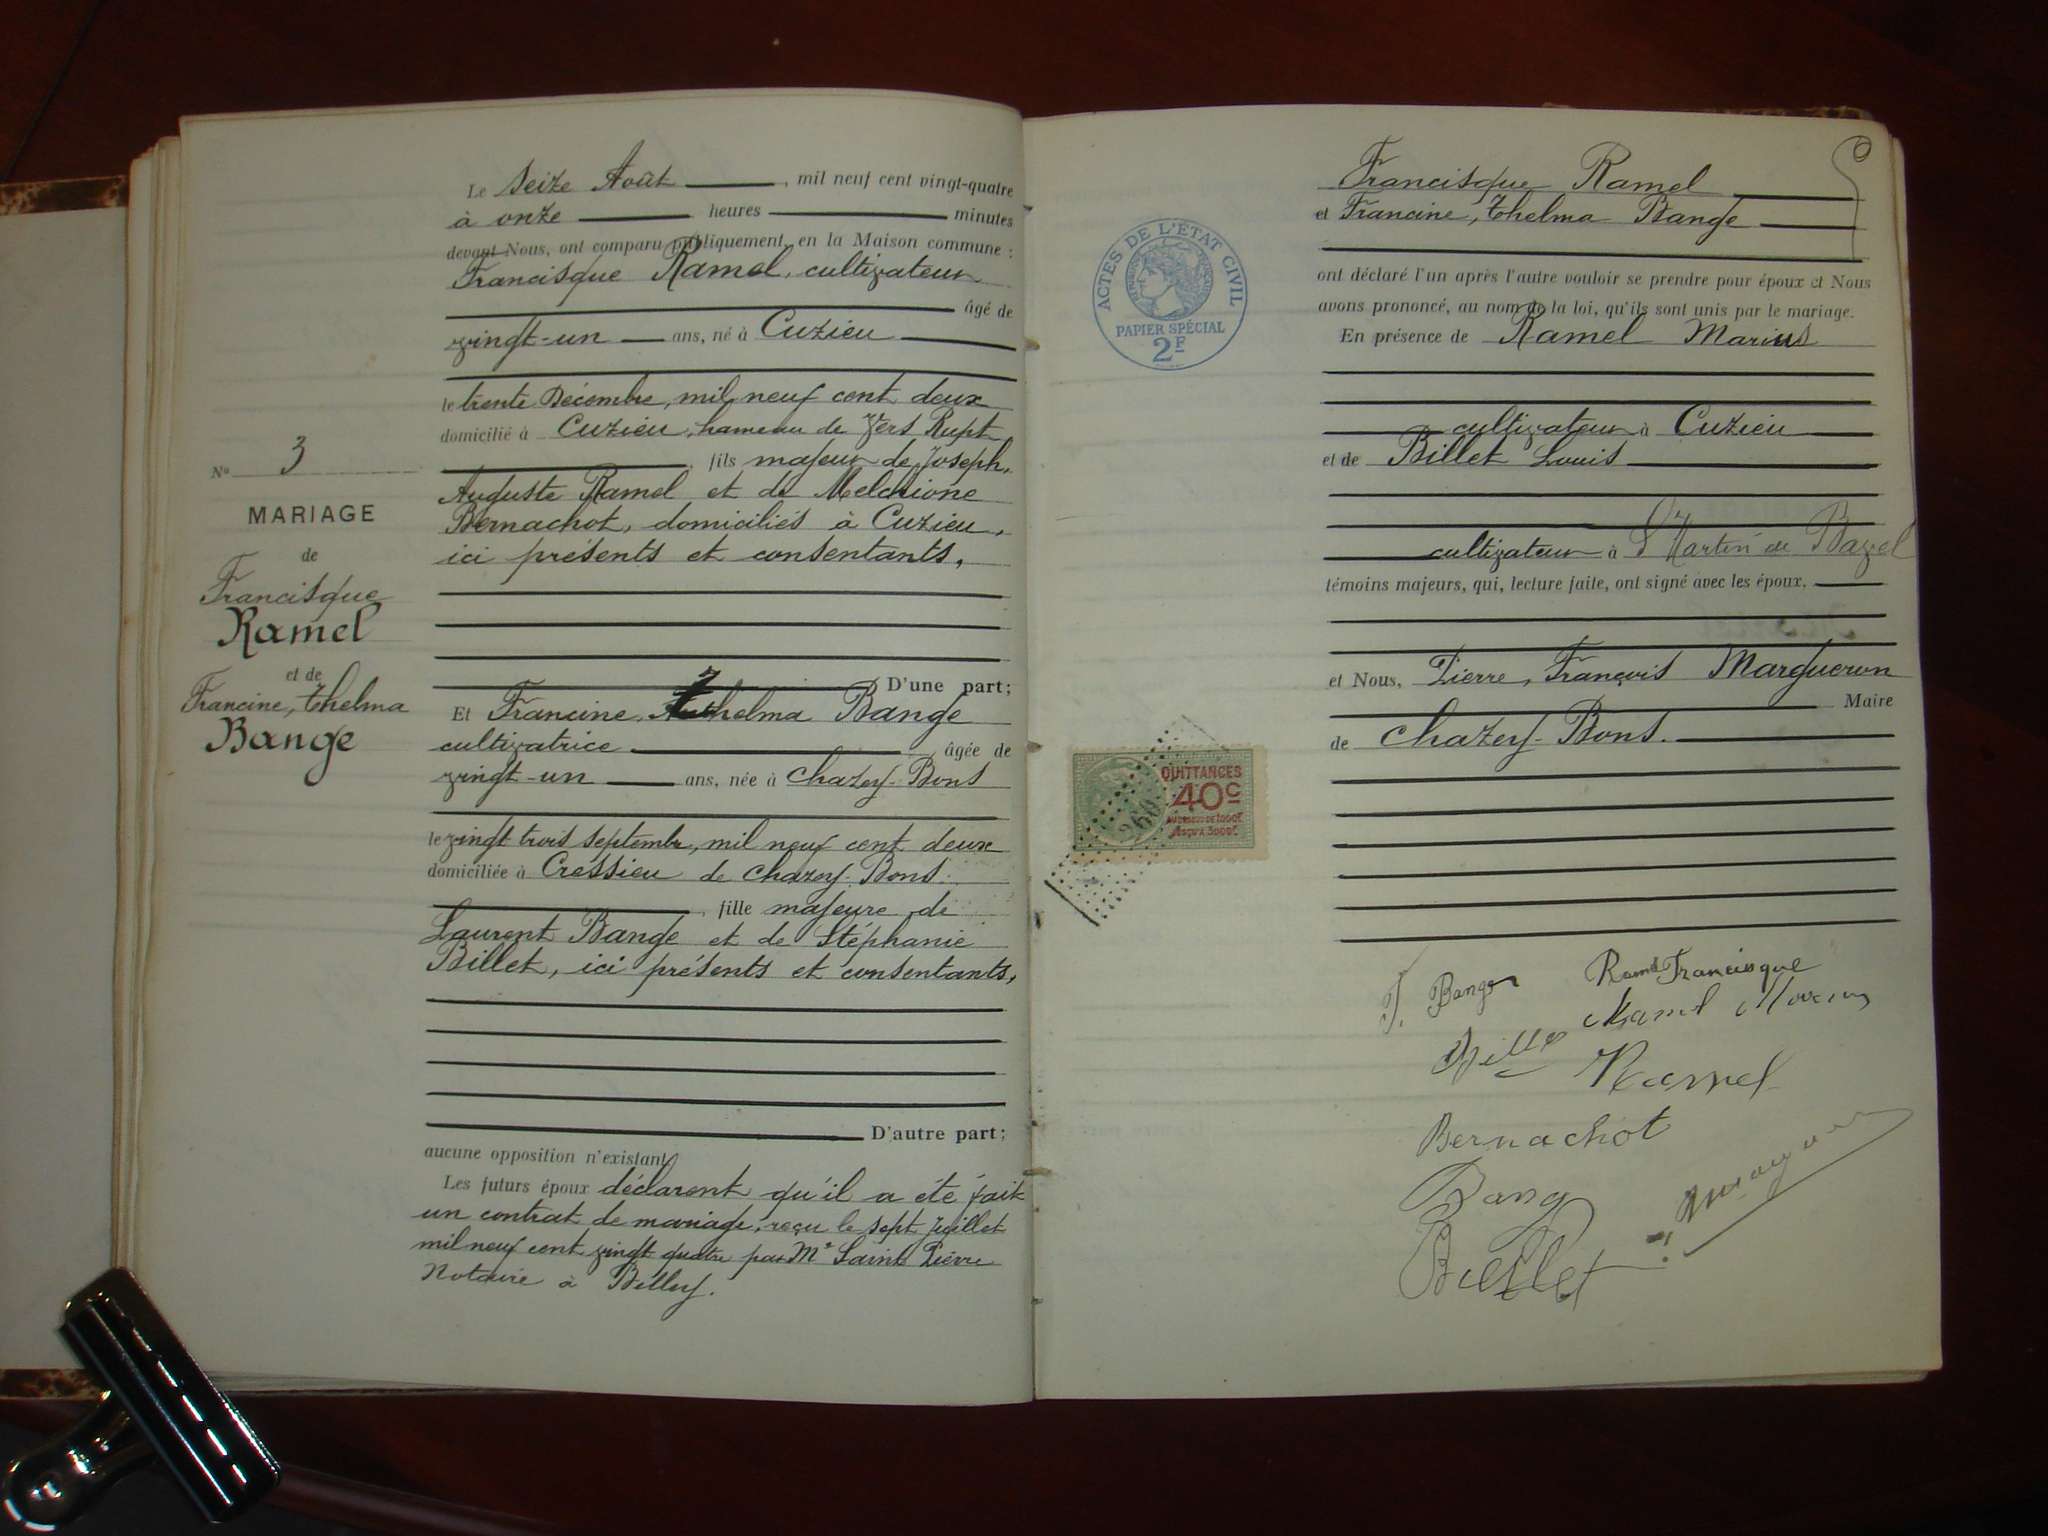 Le seize Août, mil neuf cent vingt-quatre
à onze heures minutes
devant Nous, ont comparu publiquement, en la Maison commune :
Francisque Ramel, cultivateur
âgé de
vingt-un ans, né à Cuzieu
le trente Décembre, mil neuf cent deux
domicilié à Cuzieu, hameau de Vers Rupt
, fils majeur de Joseph,
Auguste Ramel et de Melchione
Bernachot, domiciliés à Cuzieu,
ici présents et consentants,
D'une part;
Et Francine, Thelma Bange
cultivatrice, âgée de
vingt-un ans, née à Chazey-Bons
le vingt trois septembre, mil neuf cent deux
domiciliée à Cressieu de Chazey-Bons.
, fille majeure de
Laurent Bange et de Stéphanie
Billet, ici présents et consentants,
D'autre part;
aucune opposition n'existant
Les futurs époux déclarent qu'il a été fait
un contrat de mariage, reçu le sept juillet
mil neuf cent vingt quatre par Me Saint Pierre
Notaire à Belley.
No 3
MARIAGE
de
Francisque
Ramel
et de
Francine, Thelma
Bange
Francisque Ramel
et Francine, Thelma Bange
ont déclaré l'un après l'autre vouloir se prendre pour époux et Nous
avons prononcé, au nom de la loi, qu'ils sont unis par le mariage.
En présence de Ramel Marius
cultivateur à Cuzieu
et de Billet Louis
cultivateur à St Martin de Bavel
témoins majeurs, qui, lecture faite, ont signé avec les époux.
et Nous, Pierre, François Margueron
Maire
de Chazey-Bons.
ACTES DE L'ÉTAT CIVIL
PAPIER SPÉCIAL
2F
QUITTANCES
40c
AU DESSUS DE 1000F
JUSQU'A 3000F
F. Bange Ramel Francisque
Ramel Marius
Billet
Ramel
Bernachot
Bange
Billet